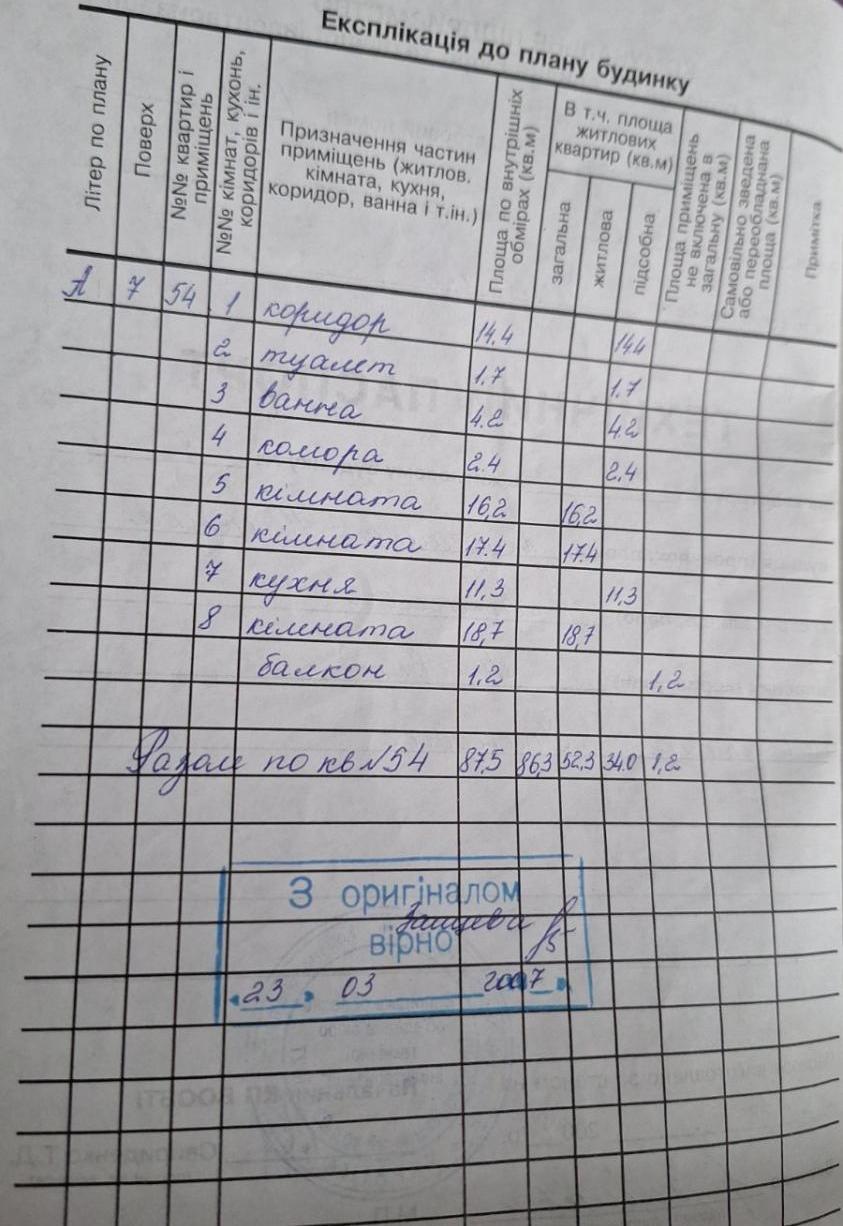 Експлікація до плану будинку
Літер по плану
Поверх
№№ квартир і
приміщень
№№ кімнат, кухонь,
коридорів і ін.
Призначення частин
приміщень (житлов.
кімната, кухня,
коридор, ванна і т.ін.)
Площа по внутрішніх
обмірах (кв.м)
В т.ч. площа
житлових
квартир (кв.м)
загальна
житлова
підсобна
Площа приміщень
не включена в
загальну (кв.м)
Самовільно зведена
або переобладнана
площа (кв.м)
Примітка
А 7 54 1 коридор 14,4 14.4
2 туалет 1.7 1.7
3 ванна 4.2 4.2
4 комора 2.4 2.4
5 кімната 16,2 16,2
6 кімната 17.4 17.4
7 кухня 11,3 11,3
8 кімната 18,7 18,7
балкон 1.2 1,2
Разом по кв №54 87,5 86,3 52,3 34.0 1,2
З оригіналом
вірно
23 03 2007